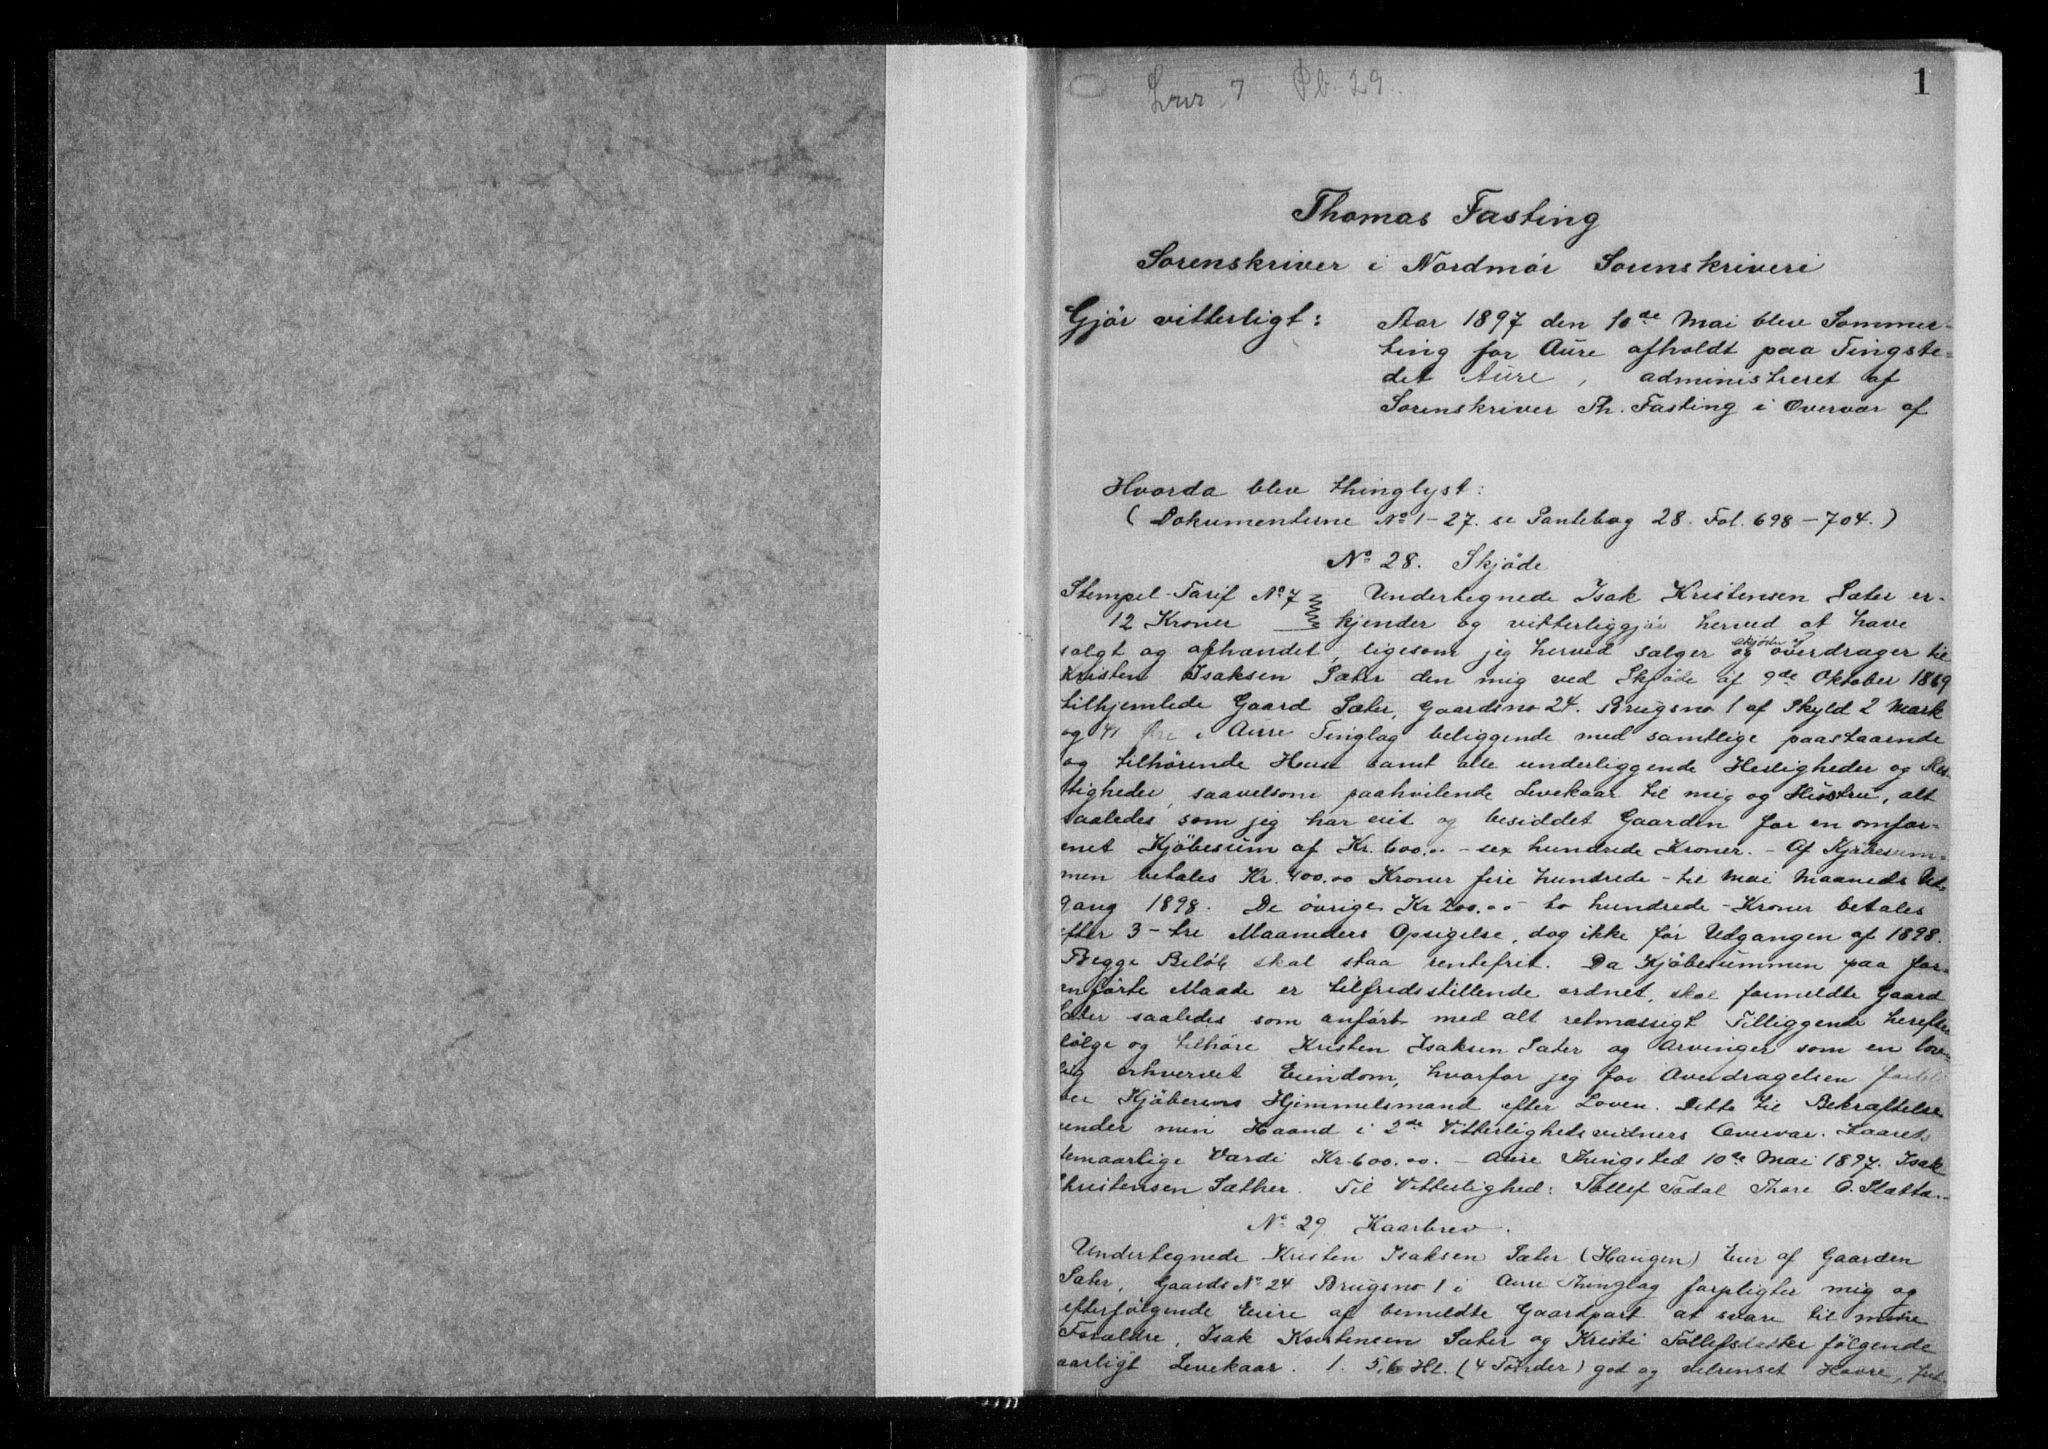 Lnr. 7 Pb. 29.
1
Thomas Fasting
Sorenskriver i Nordmør Sorenskriveri
Gjør vitterligt:
Aar 1897 den 10de Mai blev Sommer-
ting for Aure afholdt paa Tingste-
det Aure, administreret af
Sorenskriver Th. Fasting i Overvær af
Hvorda blev thinglyst:
(Dokumenterne No 1-27. se Pantebog 28. Fol. 698-704.)
No 28. Skjøde
Stempel-Tarif No 7 Undertegnede Isak Kristensen Sæter er-
12 Kroner kjender og vitterliggjør herved at have
solgt og afhændet, ligesom jeg herved sælger og skjøder og overdrager til
Kristen Isaksen Sæter den mig ved Skjøde af 9de Oktober 1869
tilhjemlede Gaard Sæter, Gaardsno 24. Brugsno 1 af Skyld 2 Mark
og 41 Øre i Aure Tinglag beliggende med samtlige paastaaende
og tilhørende Huse samt alle underliggende Herligheder og Ret-
tigheder, saavelsom paahvilende Levekaar til mig og Hustru, alt
saaledes som jeg har eiet og besiddet Gaarden for en omfor-
enet Kjøbesum af Kr. 600.00 - sex hundrede Kroner. - Af Kjøbesum-
men betales Kr. 400.00 Kroner fire hundrede - til Mai Maaneds Ud-
gang 1898. De øvrige Kr 200.00 - to hundrede - Kroner betales
efter 3 - tre Maaneders Opsigelse, dog ikke før Udgangen af 1898.
Begge Beløb skal staa rentefrit. Da Kjøbesummen paa for-
anførte Maade er tilfredsstillende ordnet, skal formeldte Gaard
Sæter saaledes som anført med alt retmæssigt Tilliggende herefter
følge og tilhøre Kristen Isaksen Sæter og Arvinger som en lov-
lig erhvervet Eiendom, hvorfor jeg for Overdragelsen forbli-
ver Kjøberens Hjemmelsmand efter Loven. Dette til Bekræftelse
under min Haand i 2de Vitterlighedsvidners Overvær. Kaarets
femaarlige Værdi Kr. 600.00. - Aure Thingsted 10de Mai 1897. Isak
Christensen Sæther. Til Vitterlighed: Tollef Todal Thore O. Sletta.
No 29 Kaarbrev.
Undertegnede Kristen Isaksen Sæter (Haugen) Eier af Gaarden
Sæter, Gaards No 24 Brugsno 1 i Aure Thinglag forpligter mig og
efterfølgende Eiere af bemeldte Gaardpart at svare til mine
Forældre, Isak Kristensen Sæter og Kristi Tollefsdatter følgende
aarligt Levekaar. 1. 5,6 Hl. (4 Tønder) god og velrenset Havre,